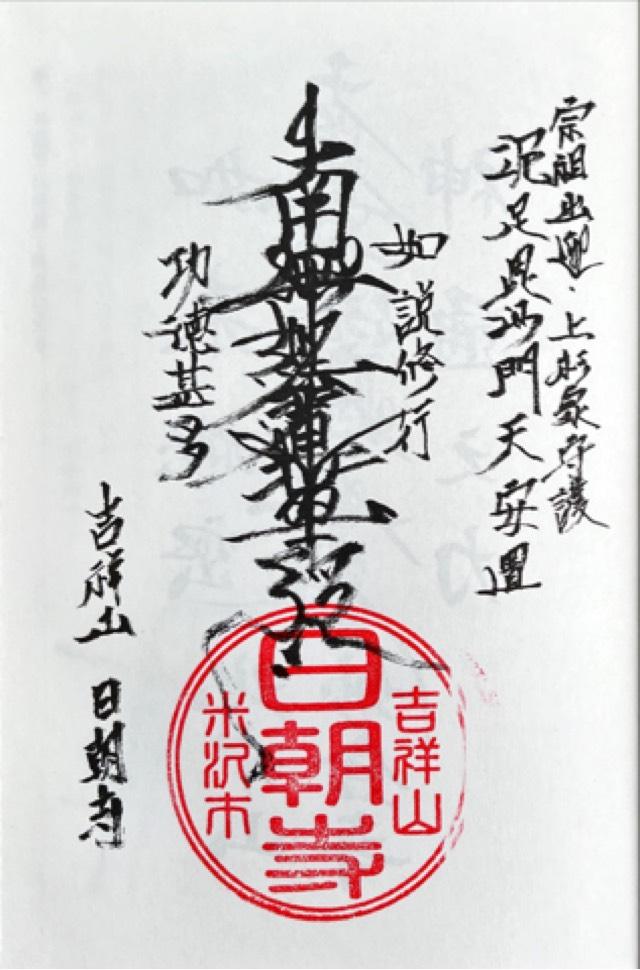 宗祖出迎・上杉家守護
泥足毘沙門天安置
如説修行
南無妙法蓮華経
功徳甚多
吉祥山 日朝寺
吉祥山
日朝寺
米沢市